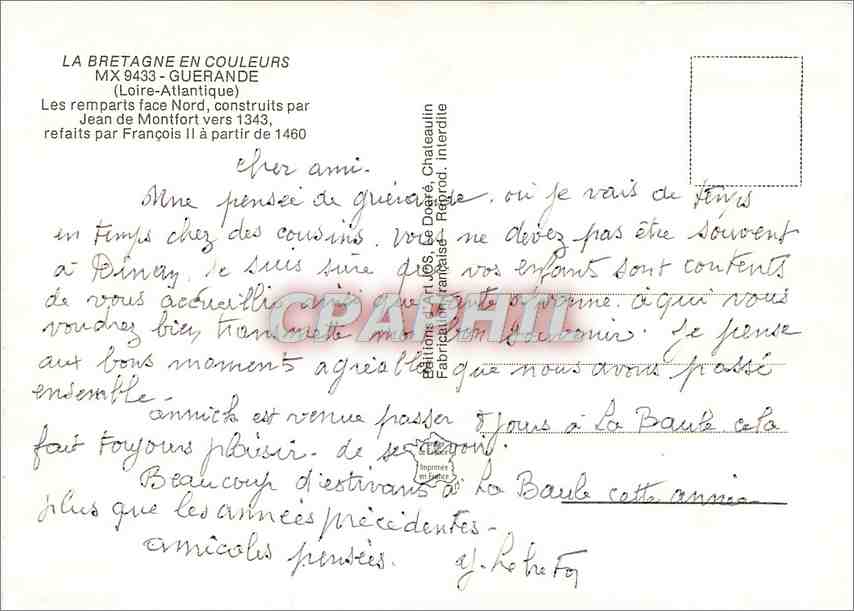 LA BRETAGNE EN COULEURS
MX 9433 - GUERANDE
(Loire-Atlantique)
Les remparts face Nord, construits par
Jean de Montfort vers 1343,
refaits par François II à partir de 1460
Editions d'art JOS, Le Doaré, Chateaulin
Fabrication Française Reprod. interdite
cher ami.
Une pensée de guérande, où je vais de temps
en temps chez des cousins. Vous ne devez pas être souvent
à Dinan, je suis sûre que vos enfants sont contents
de vous accueillir ainsi que à qui vous
voudrez bien transmettre mon bon souvenir. Je pense
aux bons moments agréables que nous avons passé
ensemble -
annick est venue passer 8 jours à La Baule cela
fait toujours plaisir - de se revoir.
Imprimée
en France
Beaucoup d'estivants à La Baule cette année
plus que les années précédentes -
amicales pensées.
CPAPHIL